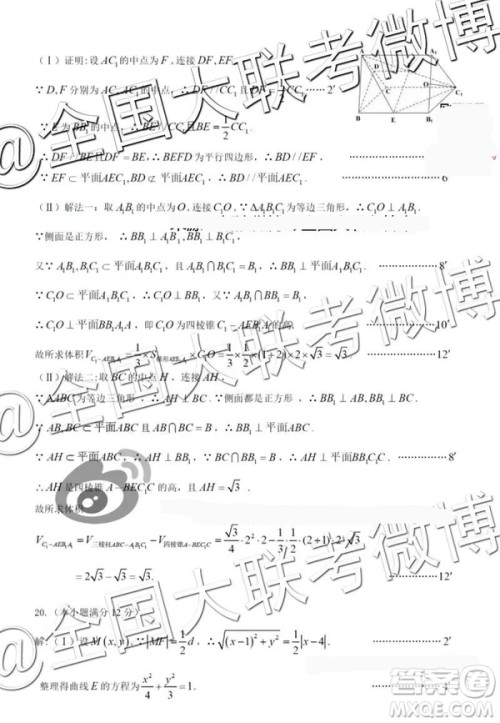 （Ⅰ）证明:设AC₁的中点为F,连接DF,EF.
∵D,F分别为AC,AC₁的中点, ∴DF//CC₁且DF=½CC₁ ……2′
∵E为BB₁的中点, ∴BE//CC₁且BE=½CC₁.
∴DF//BE且DF=BE, ∴BEFD为平行四边形, ∴BD//EF.
∵EF⊂平面AEC₁,BD⊄平面AEC₁, ∴BD//平面AEC₁. ……………6
（Ⅱ）解法一: 取A₁B₁的中点为O,连接C₁O,∵ΔA₁B₁C₁为等边三角形,
∵侧面是正方形, ∴BB₁⊥A₁B₁,BB₁⊥B₁C₁,
又∵A₁B₁,B₁C₁⊂平面A₁B₁C₁, 且A₁B₁∩B₁C₁=B₁, ∴BB₁⊥平面A₁B₁C₁. ……………8′
∵C₁O⊂平面A₁B₁C₁, ∴C₁O⊥BB₁, 又∵A₁B₁∩BB₁=B₁,
∴C₁O⊥平面BB₁A₁A, 即C₁O为四棱锥C₁-AEB₁A₁的高,
故所求体积V_{C₁-AEB₁A₁}=1/3·S_{梯形AEB₁A₁}×C₁O=1/3×1/2×(1+2)×2×√3=√3. ……………12′
（Ⅱ）解法二: 取BC的中点H, 连接AH,
∵ΔABC为等边三角形, ∴AH⊥BC. ∵侧面都是正方形, ∴BB₁⊥AB,BB₁⊥BC.
∵AB,BC⊂平面ABC且AB∩BC=B, ∴BB₁⊥平面ABC.
∵AH⊂平面ABC, ∴AH⊥BB₁, ∵BB₁∩BC=B, ∴AH⊥平面BB₁C₁C. ……………8′
∴AH是四棱锥A-BEC₁C的高, 且AH=√3.
故所求体积
V_{C₁-AEB₁A₁}=V_{三棱柱ABC-A₁B₁C₁}-V_{四棱锥A-BEC₁C}=√3/4·2²·2-1/3·1/2·(2+1)·2·√3
=2√3-√3=√3. ……………12′
20.（本小题满分12分）
解:（Ⅰ）设M(x,y),∵|MF|=½d, ∴√((x-1)²+y²)=½|x-4|. ……………2′
整理得曲线E的方程为x²/4+y²/3=1. ……………4
@全国大联考微博
@全国大联考微博
@全国大联考微博
答案圈
MXQE.COM